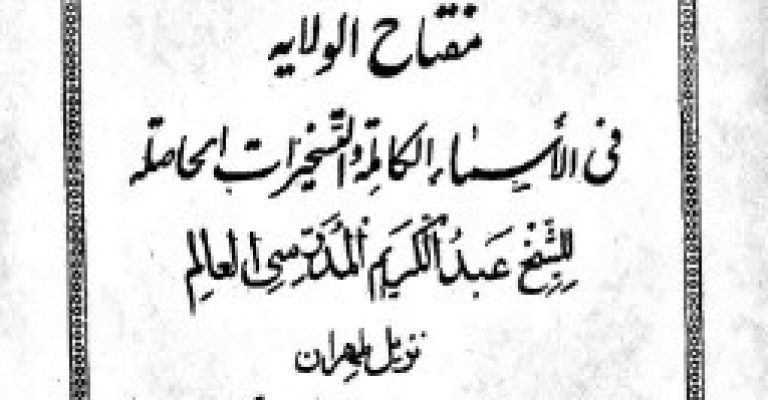 مفتاح الولايه
فى الأسماء الكاملة والتسخيرات الحاصله
للشيخ عَبدُ الكَريم المُدَرِّسى العالِم
نزيل طهران